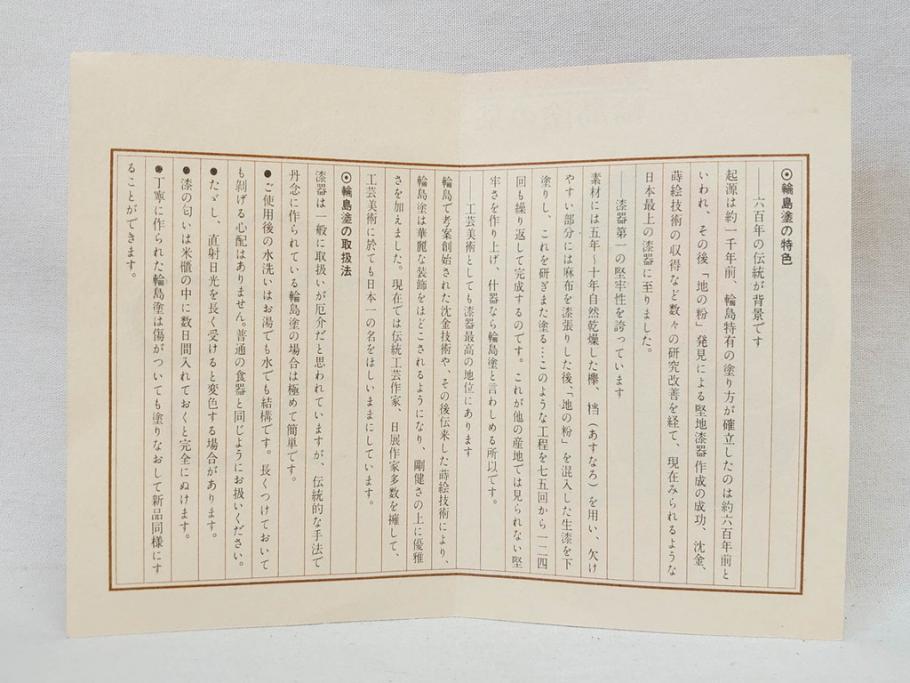 ◉輪島塗の特色
――六百年の伝統が背景です
起源は約一千年前、輪島特有の塗り方が確立したのは約六百年前と
いわれ、その後「地の粉」発見による堅地漆器作成の成功、沈金、
蒔絵技術の収得など数々の研究改善を経て、現在みられるような
日本最上の漆器に至りました。
漆器第一の堅牢性を誇っています
素材には五年〜十年自然乾燥した欅、档（あすなろ）を用い、欠け
やすい部分には麻布を漆張りした後、「地の粉」を混入した生漆を下
塗りし、これを研ぎまた塗る…このような工程を七五回から一二四
回も繰り返して完成するのです。これが他の産地では見られない堅
牢さを作り上げ、什器なら輪島塗と言わしめる所以です。
工芸美術としても漆器最高の地位にあります
輪島で考案創始された沈金技術や、その後伝来した蒔絵技術により、
輪島塗は華麗な装飾をほどこされるようになり、剛健さの上に優雅
さを加えました。現在では伝統工芸作家、日展作家多数を擁して、
工芸美術に於ても日本一の名をほしいままにしています。
◉輪島塗の取扱法
漆器は一般に取扱いが厄介だと思われていますが、伝統的な手法で
丹念に作られている輪島塗の場合は極めて簡単です。
●ご使用後の水洗いはお湯でも水でも結構です。長くつけておいて
も剝げる心配はありません。普通の食器と同じようにお扱いください。
●たゞし、直射日光を長く受けると変色する場合があります。
●漆の匂いは米櫃の中に数日間入れておくと完全にぬけます。
●丁寧に作られた輪島塗は傷がついても塗りなおして新品同様にす
ることができます。